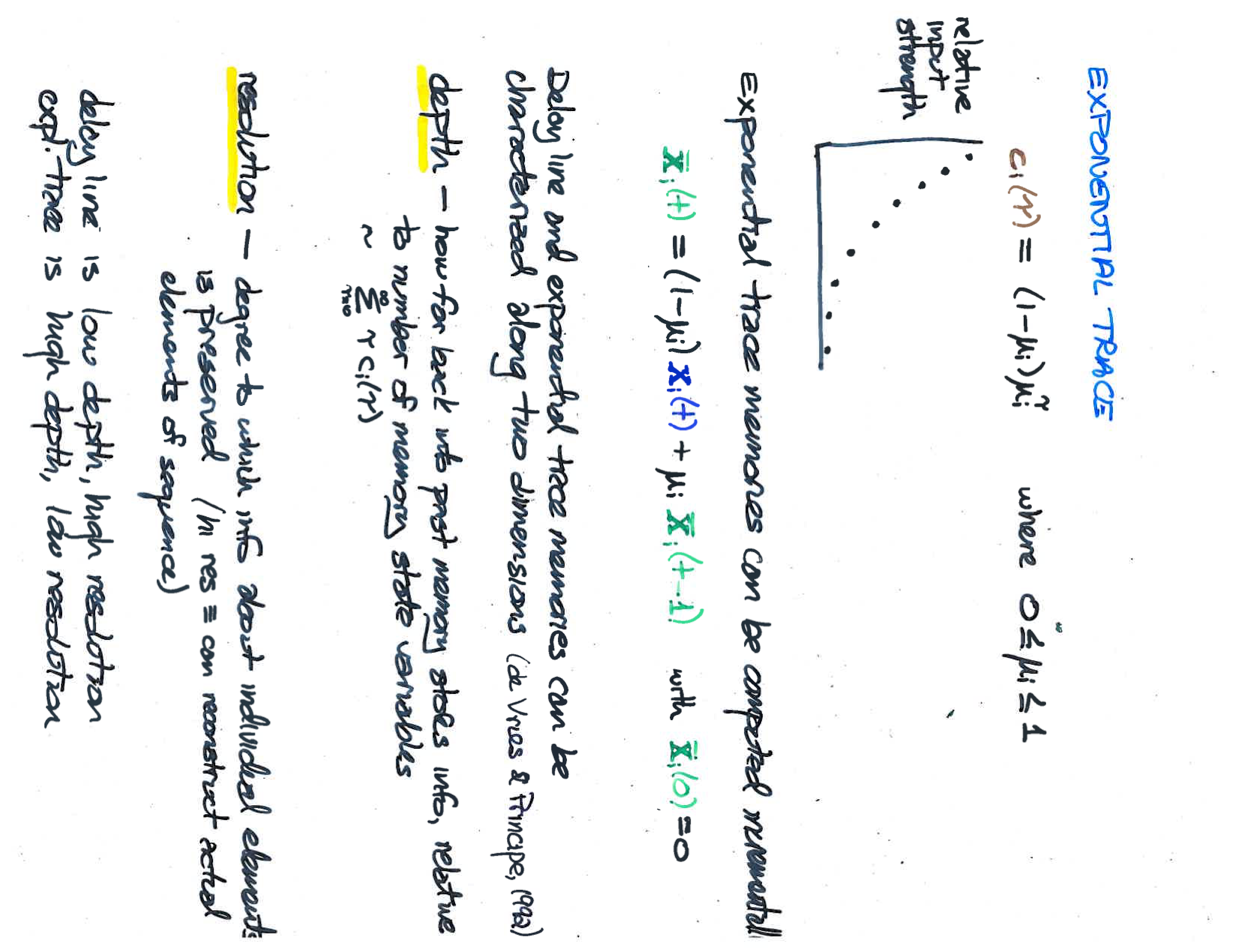 EXPONENTIAL TRACE
cᵢ(τ) = (1-μᵢ)μᵢ^τ where 0 ≤ μᵢ ≤ 1
relative
input
strength
Exponential trace memories can be computed incrementall
x̄ᵢ(t) = (1-μᵢ) xᵢ(t) + μᵢ x̄ᵢ(t-1) with x̄ᵢ(0) = 0
Delay line and exponential trace memories can be
characterized along two dimensions (de Vries & Principe, 1992)
depth – how far back into past memory stores info, relative
to number of memory state variables
~ ∑_{τ=0}^{∞} τ cᵢ(τ)
resolution – degree to which info about individual elements
is preserved (hi res ≡ can reconstruct actual
elements of sequence)
delay line is low depth, high resolution
expl. trace is high depth, low resolution